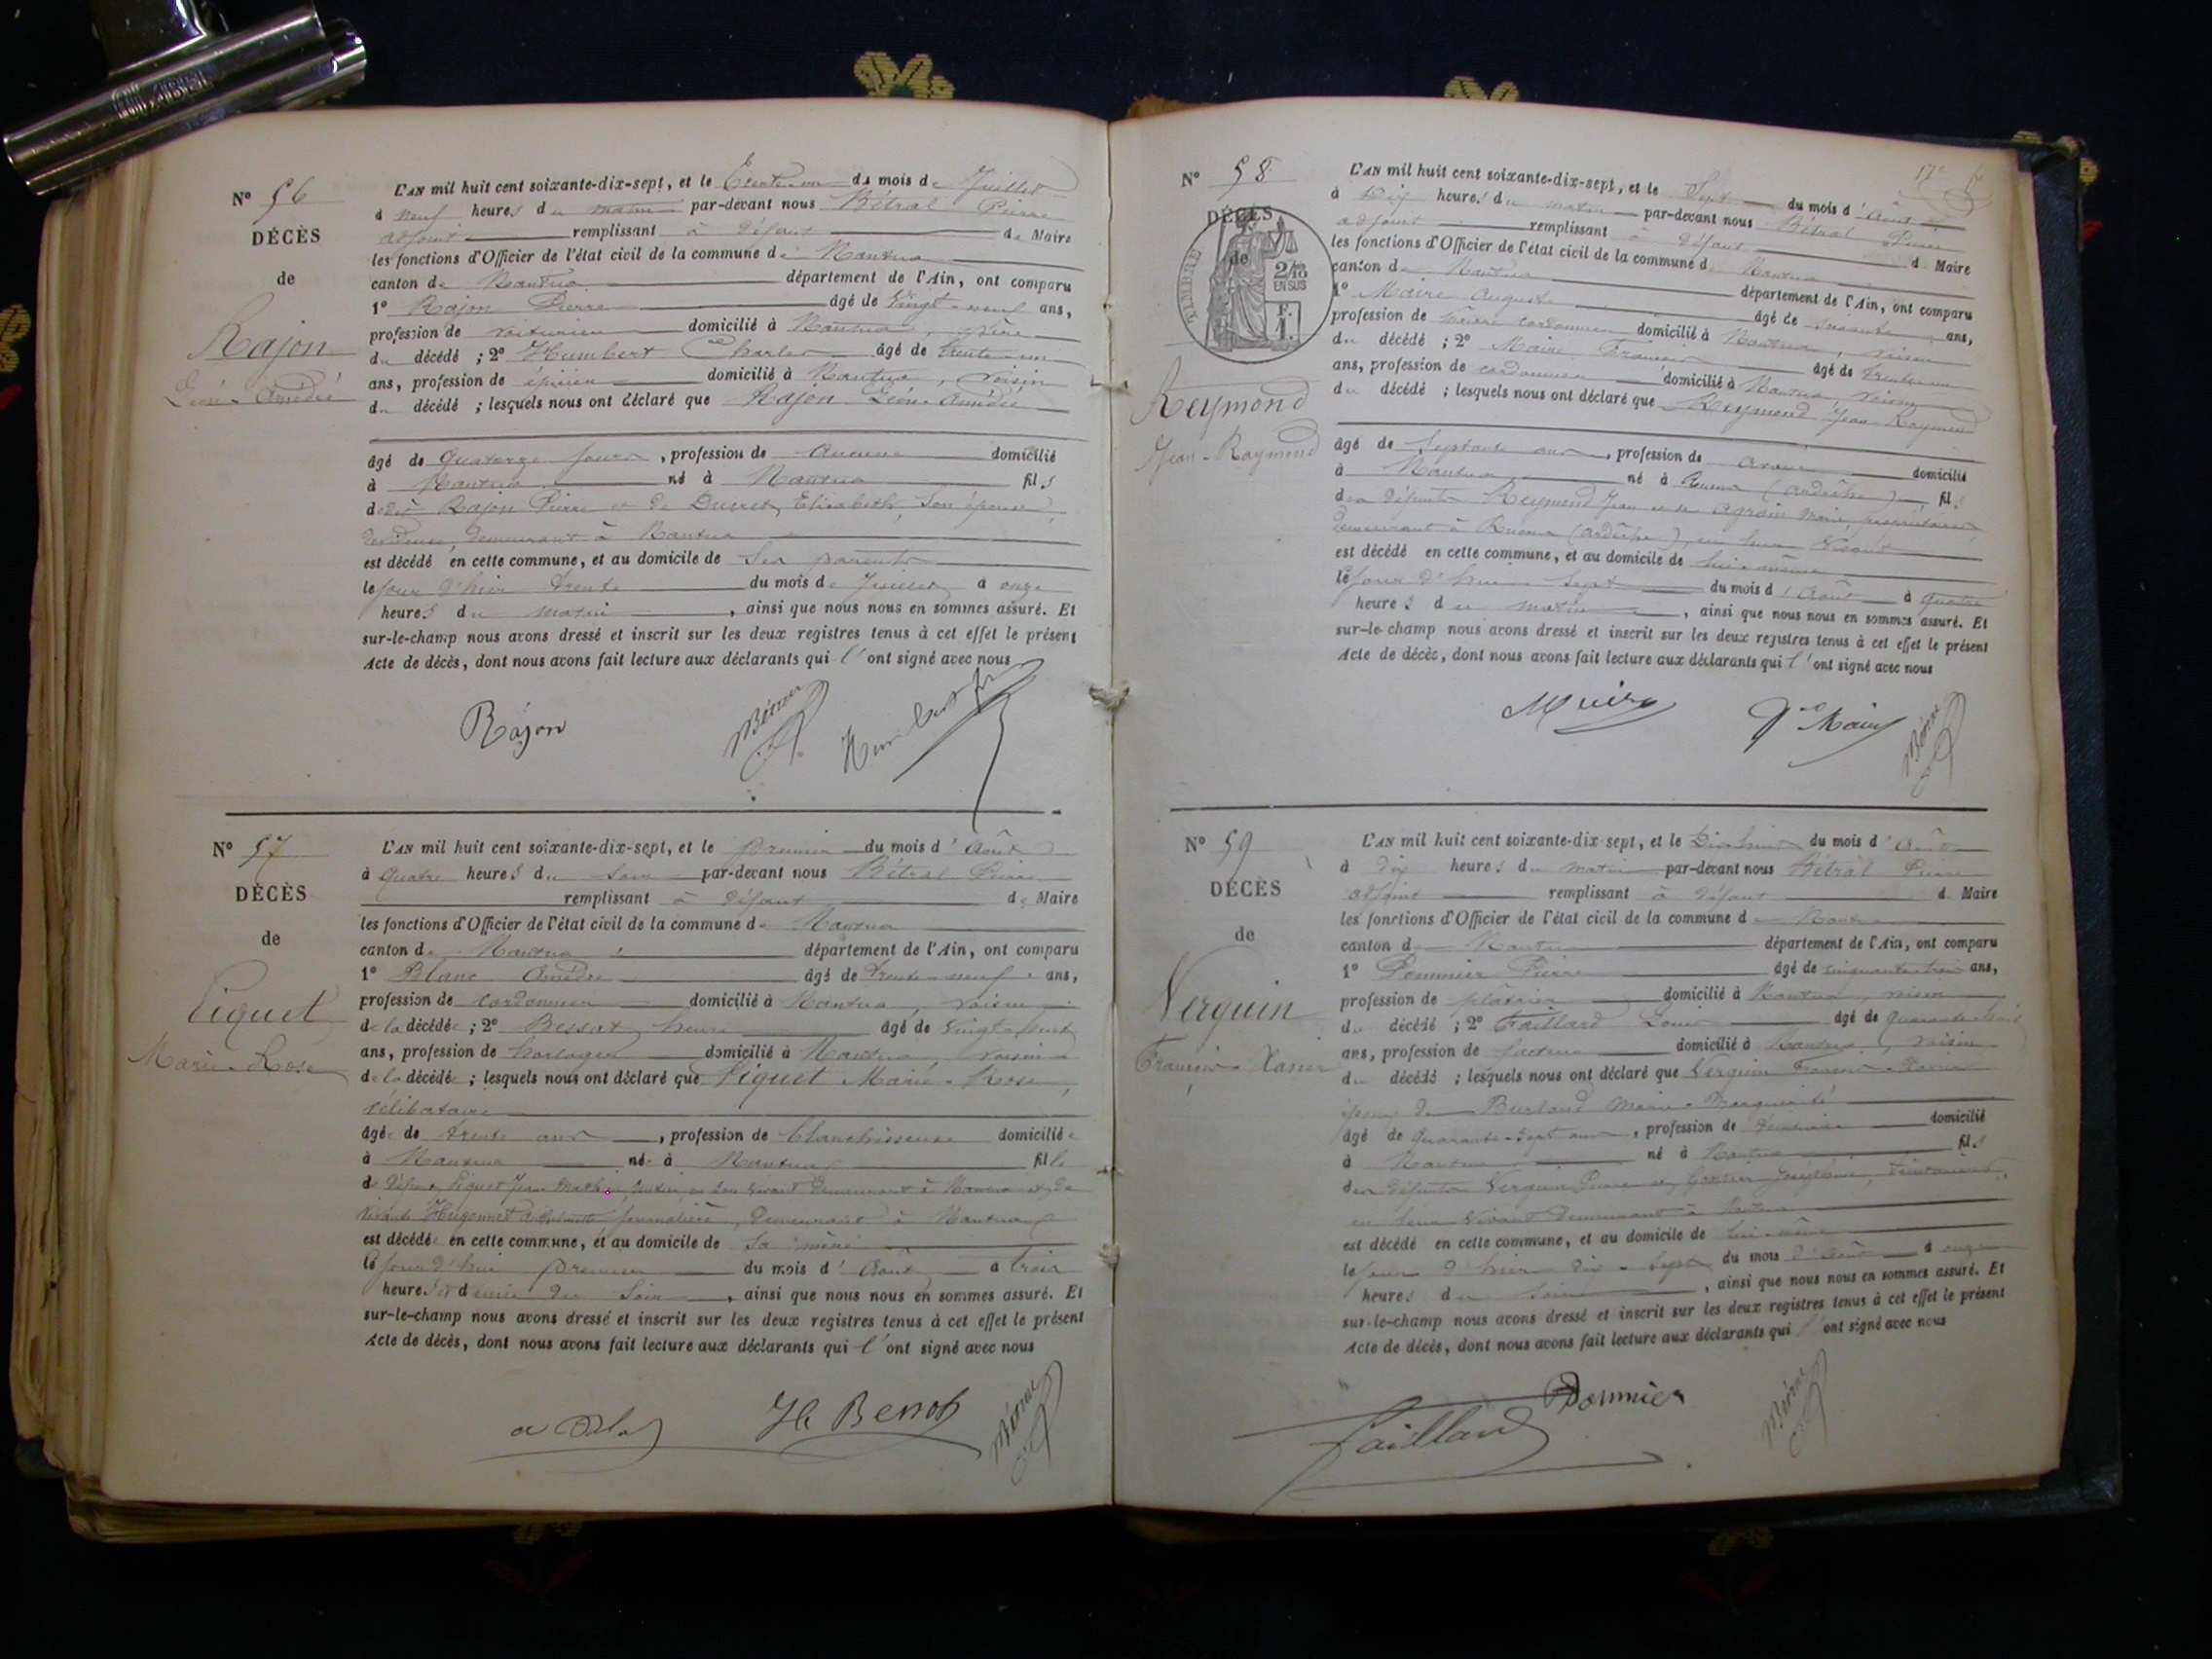 N° 56
DÉCÈS
de
Rajon
Léon-Amédée
L'AN mil huit cent soixante-dix-sept, et le Trente-un du mois de Juillet
à neuf heures du matin par-devant nous Bétral Pierre
adjoint remplissant à défaut de Maire
les fonctions d'Officier de l'état civil de la commune de Nantua
canton de Nantua département de l'Ain, ont comparu
1° Rajon Pierre âgé de Vingt-neuf ans,
profession de voiturier domicilié à Nantua, père
du décédé ; 2° Humbert Charles âgé de trente-un
ans, profession de épicier domicilié à Nantua, voisin
du décédé ; lesquels nous ont déclaré que Rajon Léon-Amédée
âgé de Quatorze jours, profession de Aucune domicilié
à Nantua né à Nantua fils
de Rajon Pierre et de Ducret Elisabeth, son épouse,
demeurant à Nantua
est décédé en cette commune, et au domicile de ses parents
le jour d'hier trente du mois de Juillet à onze
heures du matin, ainsi que nous nous en sommes assuré. Et
sur-le-champ nous avons dressé et inscrit sur les deux registres tenus à cet effet le présent
Acte de décès, dont nous avons fait lecture aux déclarants qui l'ont signé avec nous
Rajon
Humbert
N° 57
DÉCÈS
de
Piquet
Marie-Rose
L'AN mil huit cent soixante-dix-sept, et le premier du mois d'Août
à Quatre heures du soir par-devant nous Bétral Pierre
remplissant à défaut de Maire
les fonctions d'Officier de l'état civil de la commune de Nantua
canton de Nantua département de l'Ain, ont comparu
1° Blanc Amédée âgé de trente-neuf ans,
profession de cordonnier domicilié à Nantua, voisin
de la décédée ; 2° Bessat henri âgé de vingt-sept
ans, profession de horloger domicilié à Nantua, voisin
de la décédée ; lesquels nous ont déclaré que Piquet Marie-Rose,
célibataire
âgée de trente ans, profession de blanchisseuse domiciliée
à Nantua née à Nantua fille
de défunt Piquet Jean en son vivant demeurant à Nantua et de
vivante Hugonnet journalière, demeurant à Nantua
est décédée en cette commune, et au domicile de sa mère
le jour d'hui premier du mois d'Août à trois
heures et demie du soir, ainsi que nous nous en sommes assuré. Et
sur-le-champ nous avons dressé et inscrit sur les deux registres tenus à cet effet le présent
Acte de décès, dont nous avons fait lecture aux déclarants qui l'ont signé avec nous
N° 58
DÉCÈS
de
TIMBRE
2/10
EN SUS
F.
1.
Reymond
Jean-Raymond
L'AN mil huit cent soixante-dix-sept, et le Sept du mois d'Août
à Dix heures du matin par-devant nous Bétral Pierre
adjoint remplissant à défaut de Maire
les fonctions d'Officier de l'état civil de la commune de Nantua
canton de Nantua département de l'Ain, ont comparu
1° Maire Auguste âgé de ans,
profession de cordonnier domicilié à Nantua, voisin
du décédé ; 2° Maire François âgé de trente-un
ans, profession de cordonnier domicilié à Nantua, voisin
du décédé ; lesquels nous ont déclaré que Reymond Jean-Raymond
âgé de Septante ans, profession de domicilié
à Nantua né à Ruoms (Ardèche), fils
des défunts Reymond Jean et de Agrain Marie, propriétaires
demeurant à Ruoms (Ardèche), en leur vivant
est décédé en cette commune, et au domicile de lui-même
le jour d'hui sept du mois d'Août à quatre
heures du matin, ainsi que nous nous en sommes assuré. Et
sur-le-champ nous avons dressé et inscrit sur les deux registres tenus à cet effet le présent
Acte de décès, dont nous avons fait lecture aux déclarants qui l'ont signé avec nous
Maire
N° 59
DÉCÈS
de
Verguin
François-Xavier
L'AN mil huit cent soixante-dix-sept, et le Dix-huit du mois d'Août
à dix heures du matin par-devant nous Bétral Pierre
adjoint remplissant à défaut de Maire
les fonctions d'Officier de l'état civil de la commune de Nantua
canton de Nantua département de l'Ain, ont comparu
1° Pommier Pierre âgé de cinquante-trois ans,
profession de plâtrier domicilié à Nantua, voisin
du décédé ; 2° Taillard Louis âgé de quarante-huit
ans, profession de facteur domicilié à Nantua, voisin
du décédé ; lesquels nous ont déclaré que Verguin François-Xavier
époux de Burlond Marie-Marguerite
âgé de Quarante-sept ans, profession de domicilié
à Nantua né à Nantua fils
des défunts Verguin Pierre et Joséphine,
en leur vivant demeurant à Nantua
est décédé en cette commune, et au domicile de lui-même
le jour d'hier dix-sept du mois d'Août à onze
heures du soir, ainsi que nous nous en sommes assuré. Et
sur-le-champ nous avons dressé et inscrit sur les deux registres tenus à cet effet le présent
Acte de décès, dont nous avons fait lecture aux déclarants qui l'ont signé avec nous
Pommier
Taillard